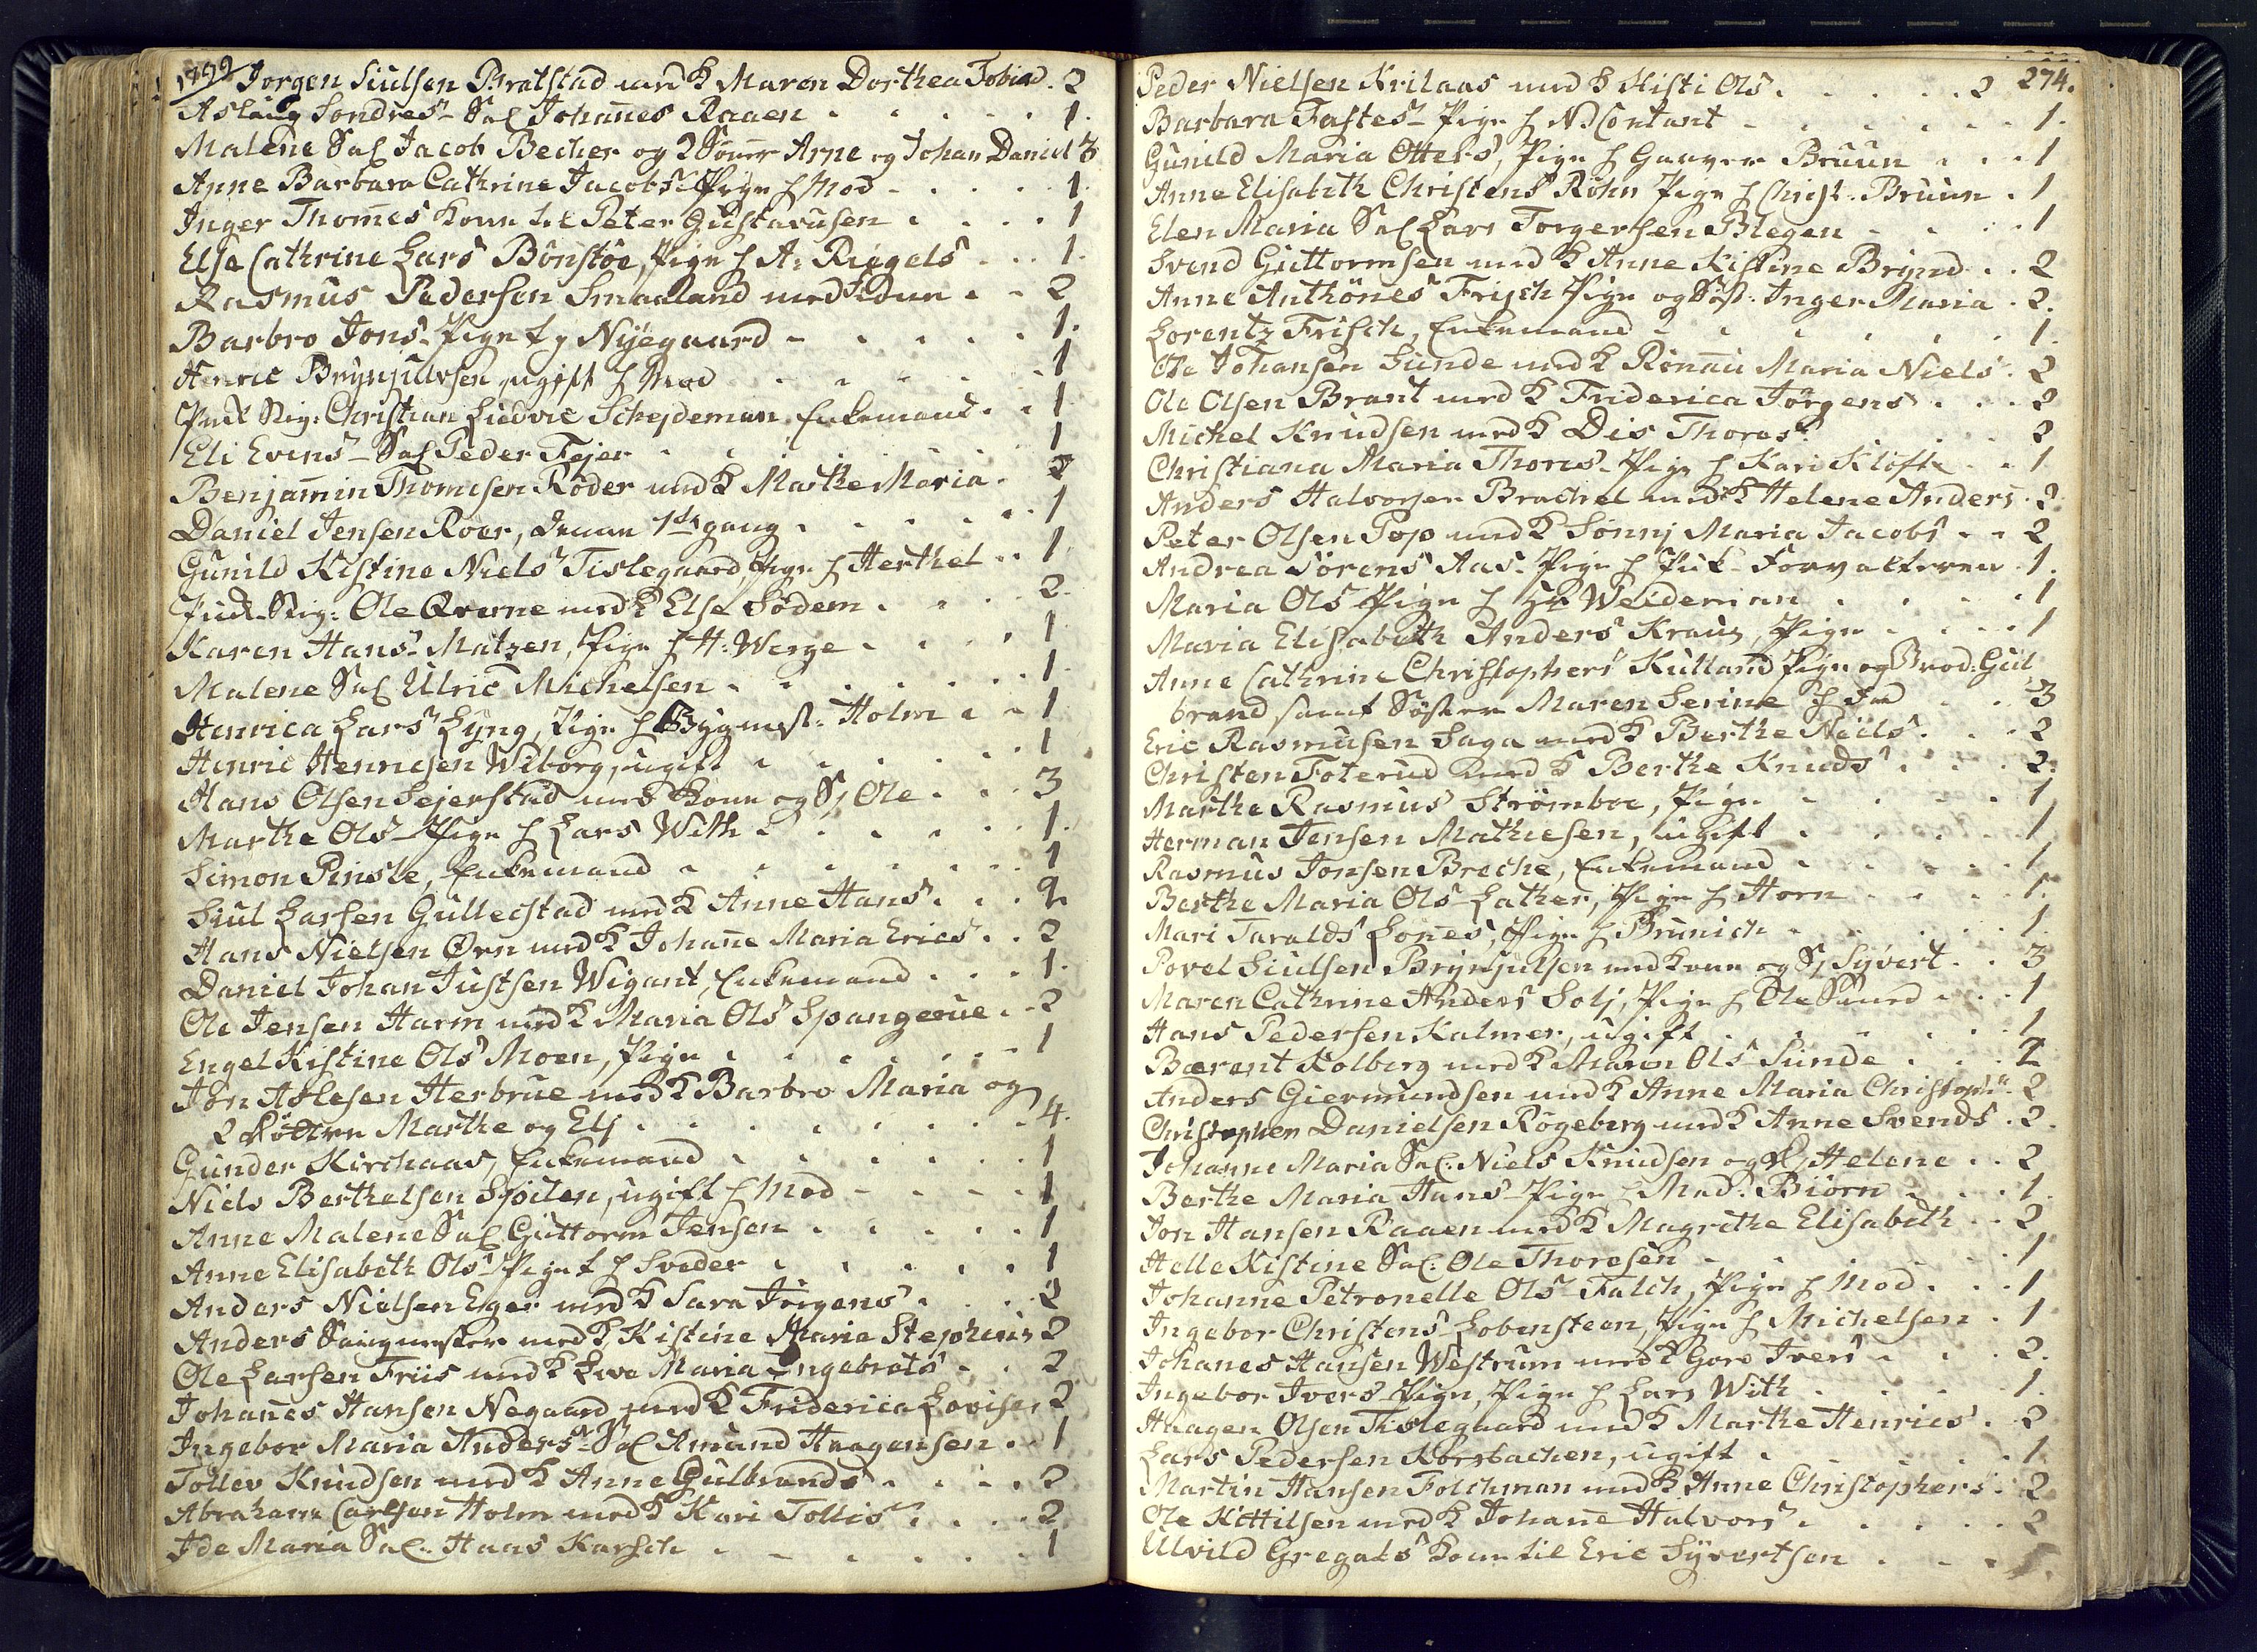 1799
Jorgen Siulsen Bratstad med K Maren Dorthea Tobias . 2
Aslaug Sondres - Sal Johan̄es Raaen . . . . . 1.
Malene Sal Jacob Becher og 2 Sön̄er Arne og Johan Daniel 3
Anne Barbara Cathrine Jacobs Pige h Mod - . . . . 1.
Inger Thom̄es Kone til Peter Gustavusen . . . . 1
Else Cathrine Lars Bönstöe, Pige h A: Riegels . . . 1.
Rasmus Pedersen Smaaland med . . 2
Barbro Jons - Pige Nÿegaard - . . . . . 1.
Henric Brynjulvsen ugift h Mod . . . . . 1
Stig: Christian Ludvic Schejdeman Enkemand . . 1
Eli Evens - Sal Peder Fejer . . . . . . 1
Benjamin Thomesen Röder med K Marthe Maria . 2
Daniel Jensen Roer, 1ste gang . . . . . . 1
Gunild Kistine Niels Tislegaard Pige h Herthel . . 1
Stig: Ole Qverne med K Else Södem . . . . 2.
Karen Hans - Matzen, Pige h H: Werge . . . . 1
Malene Sal Ulric Michelsen . . . . . . . 1
Henrica Lars Lÿng, Pige h Bÿgmest: Holm . . 1
Henric Hennesen Wiborg, ugift . . . . . . 1
Hans Olsen Sejerstad med Kone og S/ Ole . . . 3
Marthe Ols - Pige h Lars With . . . . . . 1.
Simon Pinsle, Enkemand . . . . . . . 1
Siul Larsen Gullecstad med K Anne Hans . . . 2
Hans Nielsen Örn med K Johan̄e Maria Erics . . 2
Daniel Johan Justsen Wigant, Enkemand . . . . 1.
Ole Jensen Harm med K Maria Ols Spangerue . . 2
Engel Kistine Ols Moen, Pige . . . . . . 1
Jon Atlesen Herbrue med K Barbro Maria og
2 Döttre Marthe og Elj . . . . . . . . 4.
Gunder Kirchaas, Enkemand . . . . . . 1
Niels Berthelsen Spiten, ugift h Mod - . . . . 1
Anne Malene Sal Guttorm Jensen . . . . . 1
Anne Elisabeth Ols - Pige h Sveder . . . . . 1
Anders Nielsen Eger med K Sara Jörgens . . . . 2
Anders Sangmester med K Kistine Marie Stephens 2
Ole Larsen Friis med K Eva Maria Ingebrets - . . 2
Johan̄es Hansen Negaard med K Friderica Lovise 2
Ingebor Maria Anders - Sal Amund Haagensen . . 1
Tollev Knudsen med K Anne Gulbrands . . . . 2
Abraham Carlsen Holm med K Kari Tollis . . . . 2
Ide Maria Sal. Haas Karsch . . . . . . 1
274.
Peder Nielsen Krilaas med K Kisti Ols . . . . . 2
Barbara Fastes - Pige h N. Contant - . . . . . 1.
Gunild Maria Otters, Pige h Gaaver Bruun . . . 1
Anne Elisabeth Christens Röhn Pige h Christ: Bruun . 1
Elen Maria Sal Lars Torgersen Blegen - . . . . 1
Svend Guttormsen med K Anne Kistine Brynd . . 2
Anne Anthönes Frisch Pige og Söst: Inger Maria . 2.
Lorentz Frisch, Enkemand . . . . . . . 1.
Ole Johansen Sunde med K Rönnau Maria Niels . 2
Ole Olsen Brant med K Friderica Jörgens . . . 2
Michel Knudsen med K Dis Thoras . . . . 2
Christiana Maria Thores - Pige h Kari Klöfte . . 1
Anders Halvorsen Brachel med K Helene Anders . 2
Peter Olsen Pop med K Sonnj Maria Jacobs . . 2
Andrea Sörens Aas - Pige h Forvalteren . 1.
Maria Ols Pige h Weideman . . . . 1
Maria Elisabeth Anders Kraus, Pige . . . . 1
Anne Cathrine Christophers Kulland Pige og Brod: Gul
brand samt Söster Maren Serine . . . 3
Eric Rasmusen Saga med K Berthe Niels . . . . 2
Christen Foterud med K Berthe Knuds . . . . 2.
Marthe Rasmus Strömboe, Pige . . . . . 1
Herman Jensen Mathiesen, ugift . . . . . 1
Rasmus Jonsen Breche, Enkemand . . . . . 1
Berthe Maria Ols - Lather, Pige h Horn . . . . 1.
Mari Taralds Lones, Pige h Brunich . . . . . 1.
Povel Siulsen Brynjulsen med Kone og S/ Syvert . . 3
Maren Cathrine Anders Solj, Pige h Ole . . . 1
Hans Pedersen Kalmer, ugift . . . . . . 1
Bærent Kolberg med K Maren Ols Sunde . . . 2
Anders Giermundsen med K Anne Maria Christoph: 2
Christopher Danielsen Rögeberg med K Anne Svends . 2.
Johanne Maria Sal: Niels Knudsen og D/ Helene . . 2
Berthe Maria Hans - Pige h Mad: Biörn . . . . 1.
Jon Hansen Raaen med K Magrethe Elisabeth . . 2
Helle Kistine Sal: Ole Thoresen . . . . . . 1
Johanne Petronelle Ols - Falch, Pige h Mod . . . 1
Ingebor Christens - Lobensteen, Pige h Michelsen . 1
Johanes Hansen Westrum med K Goro Ivers . . . 2.
Ingebor Ivers Pige, Pige h Lars With . . . . 1.
Haagen Olsen Tislegaard med K Marthe Henrics . 2
Lars Pedersen Korsbachen, ugift . . . . . 1
Martin Hansen Folchman med K Anne Christophers . 2
Ole Kittilsen med K Johan̄e Halvors . . . . . 2
Ulvild Gregats Kone til Eric Syvertsen . . . 1.